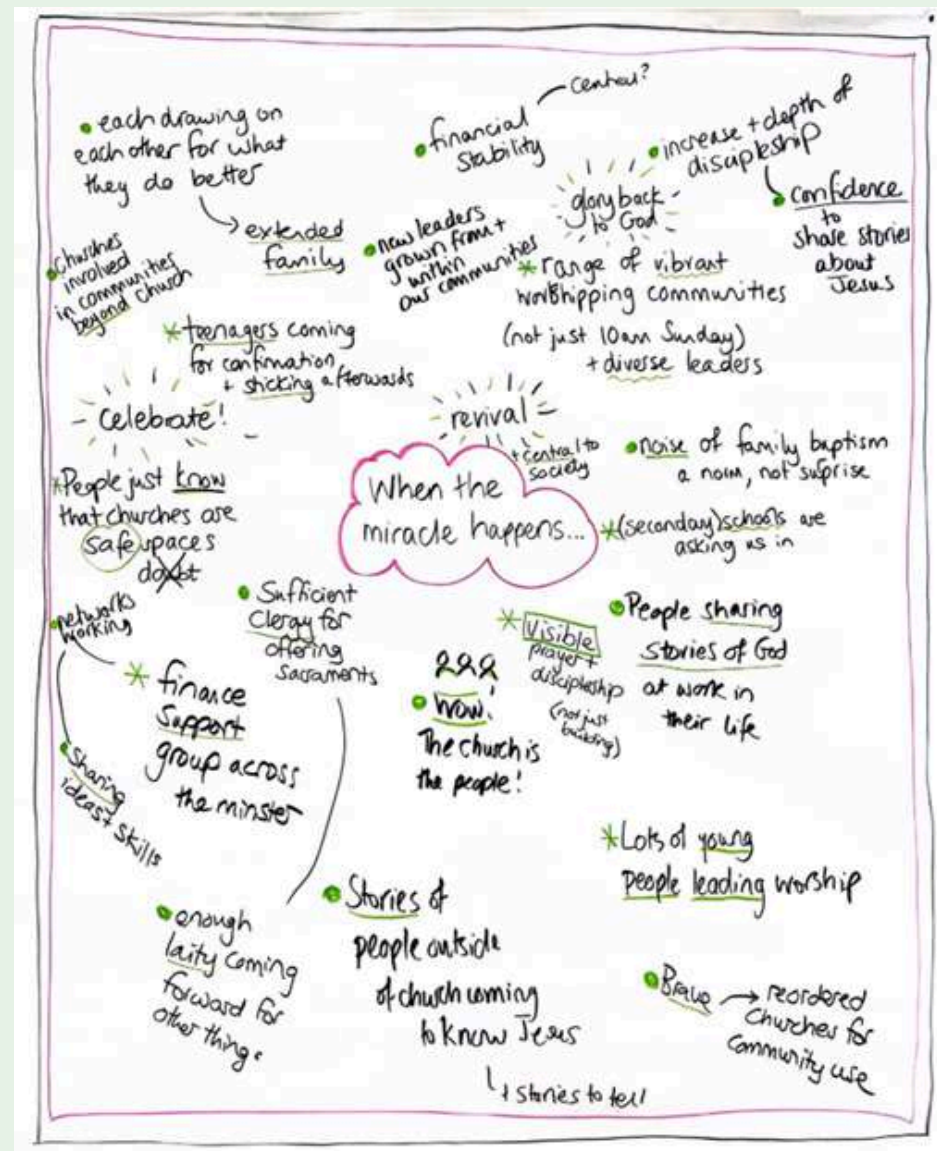 central?
• each drawing on
each other for what
they do better
→ extended
family
• financial
stability
• increase + depth of
discipleship
• confidence
to
share stories
about
Jesus
glory back
to God
• churches
involved
in communities
beyond church
• new leaders
grown from +
within
our communities
* range of vibrant
worshipping communities
(not just 10am Sunday)
+ diverse leaders
* teenagers coming
for confirmation
+ sticking afterwards
celebrate!
revival
+ central to
society
When the
miracle happens...
• noise of family baptism
a norm, not suprise
* People just know
that churches are
safe spaces
doubt
* (seconday) schools are
asking us in
• networks
working
• Sufficient
Clergy for
offering
Sacraments
* Visible
prayer +
discipleship
(not just
building)
• People sharing
stories of God
at work in
their life
* finance
Support
group across
the minster
• Wow!
The church is
the people!
• Sharing
ideas + skills
* Lots of young
people leading worship
• enough
laity coming
forward for
other things
• Stories of
people outside
of church coming
to know Jesus
+ stories to tell
• Brave → reordered
Churches for
Community use